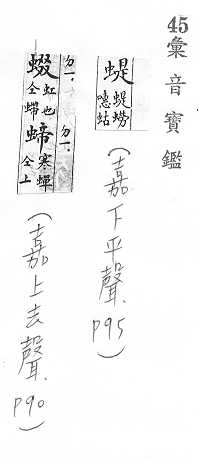 45彙音寶鑑
蝭蝭蟧
蟋蛄
(嘉下平聲.P95)
ㄉㄧ.
蝃虹也
仝螮
ㄉㄧ.
蝭寒蟬
仝上
(嘉上去聲.P90)